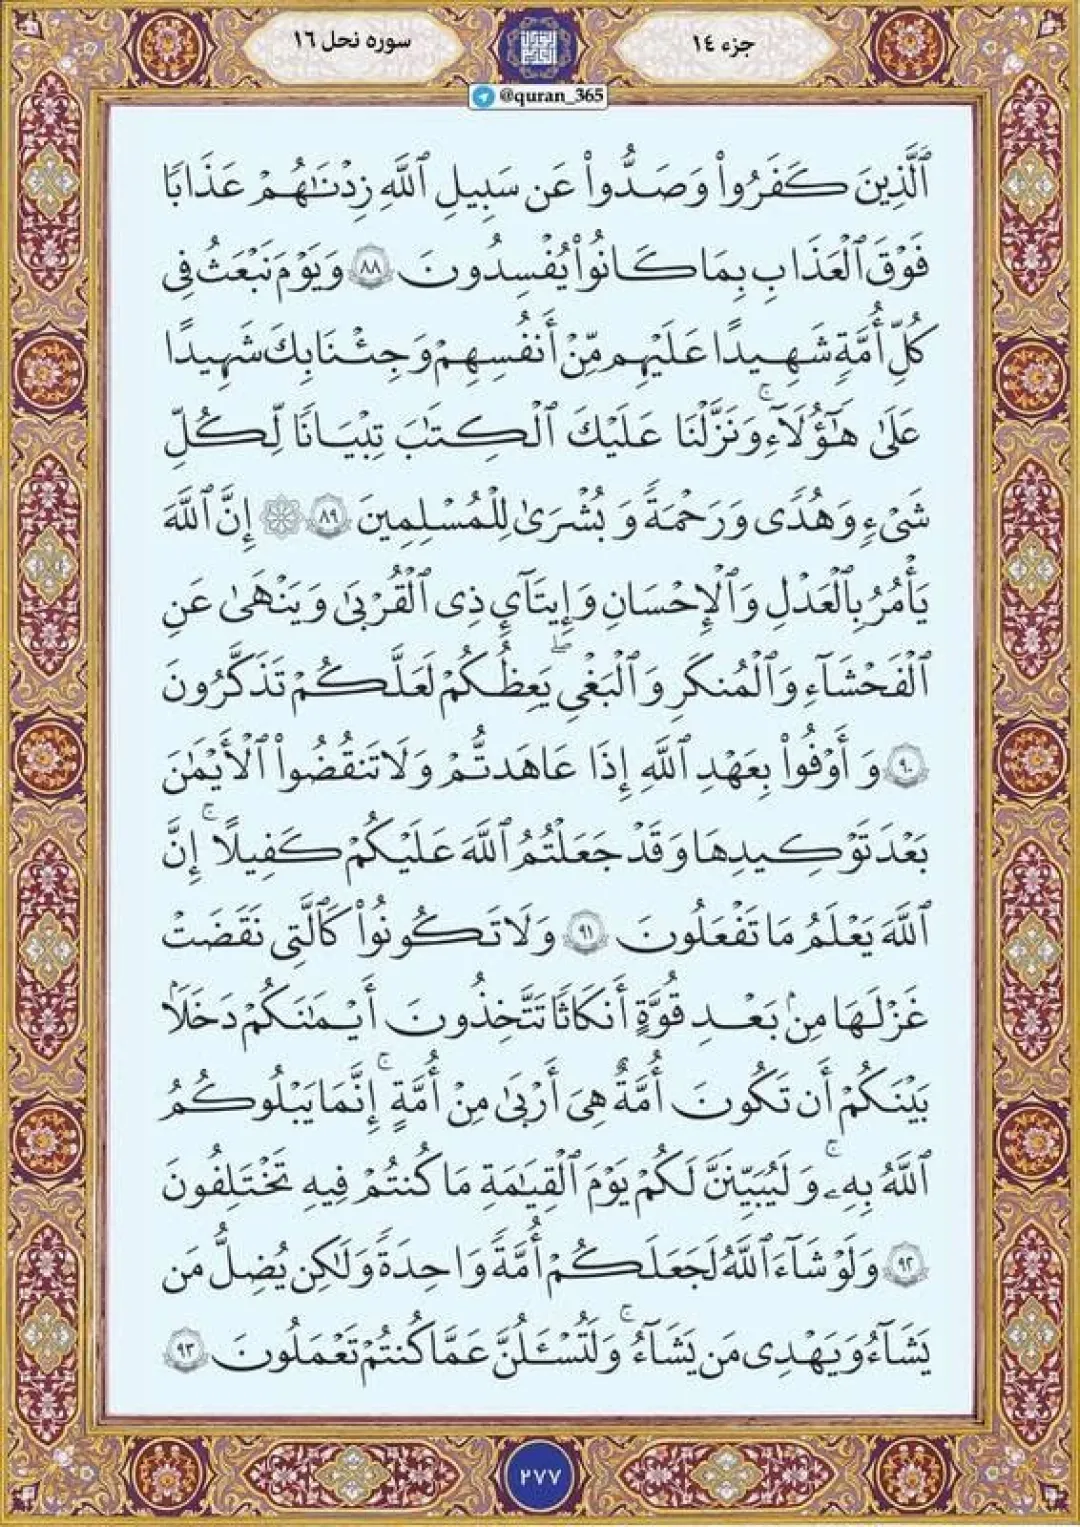 جزء ١٤
سوره نحل ١٦
@quran_365
ٱلَّذِينَ كَفَرُوا۟ وَصَدُّوا۟ عَن سَبِيلِ ٱللَّهِ زِدْنَـٰهُمْ عَذَابًا
فَوْقَ ٱلْعَذَابِ بِمَا كَانُوا۟ يُفْسِدُونَ ٨٨ وَيَوْمَ نَبْعَثُ فِى
كُلِّ أُمَّةٍ شَهِيدًا عَلَيْهِم مِّنْ أَنفُسِهِمْ وَجِئْنَا بِكَ شَهِيدًا
عَلَىٰ هَـٰٓؤُلَآءِ ۚ وَنَزَّلْنَا عَلَيْكَ ٱلْكِتَـٰبَ تِبْيَـانًا لِّكُلِّ
شَىْءٍ وَهُدًى وَرَحْمَةً وَبُشْرَىٰ لِلْمُسْلِمِينَ ٨٩ ۞ إِنَّ ٱللَّهَ
يَأْمُرُ بِٱلْعَدْلِ وَٱلْإِحْسَانِ وَإِيتَآئِ ذِى ٱلْقُرْبَىٰ وَيَنْهَىٰ عَنِ
ٱلْفَحْشَآءِ وَٱلْمُنكَرِ وَٱلْبَغْىِ ۖ يَعِظُكُمْ لَعَلَّكُمْ تَذَكَّرُونَ
٩٠ وَأَوْفُوا۟ بِعَهْدِ ٱللَّهِ إِذَا عَاهَدتُّمْ وَلَا تَنقُضُوا۟ ٱلْأَيْمَـٰنَ
بَعْدَ تَوْكِيدِهَا وَقَدْ جَعَلْتُمُ ٱللَّهَ عَلَيْكُمْ كَفِيلًا ۚ إِنَّ
ٱللَّهَ يَعْلَمُ مَا تَفْعَلُونَ ٩١ وَلَا تَكُونُوا۟ كَٱلَّتِى نَقَضَتْ
غَزْلَهَا مِنۢ بَعْدِ قُوَّةٍ أَنكَاثًا تَتَّخِذُونَ أَيْمَـٰنَكُمْ دَخَلًۢا
بَيْنَكُمْ أَن تَكُونَ أُمَّةٌ هِىَ أَرْبَىٰ مِنْ أُمَّةٍ ۚ إِنَّمَا يَبْلُوكُمُ
ٱللَّهُ بِهِۦ ۚ وَلَيُبَيِّنَنَّ لَكُمْ يَوْمَ ٱلْقِيَـٰمَةِ مَا كُنتُمْ فِيهِ تَخْتَلِفُونَ
٩٢ وَلَوْ شَآءَ ٱللَّهُ لَجَعَلَكُمْ أُمَّةً وَاحِدَةً وَلَـٰكِن يُضِلُّ مَن
يَشَآءُ وَيَهْدِى مَن يَشَآءُ ۚ وَلَتُسْـَٔلُنَّ عَمَّا كُنتُمْ تَعْمَلُونَ ٩٣
٢٧٧